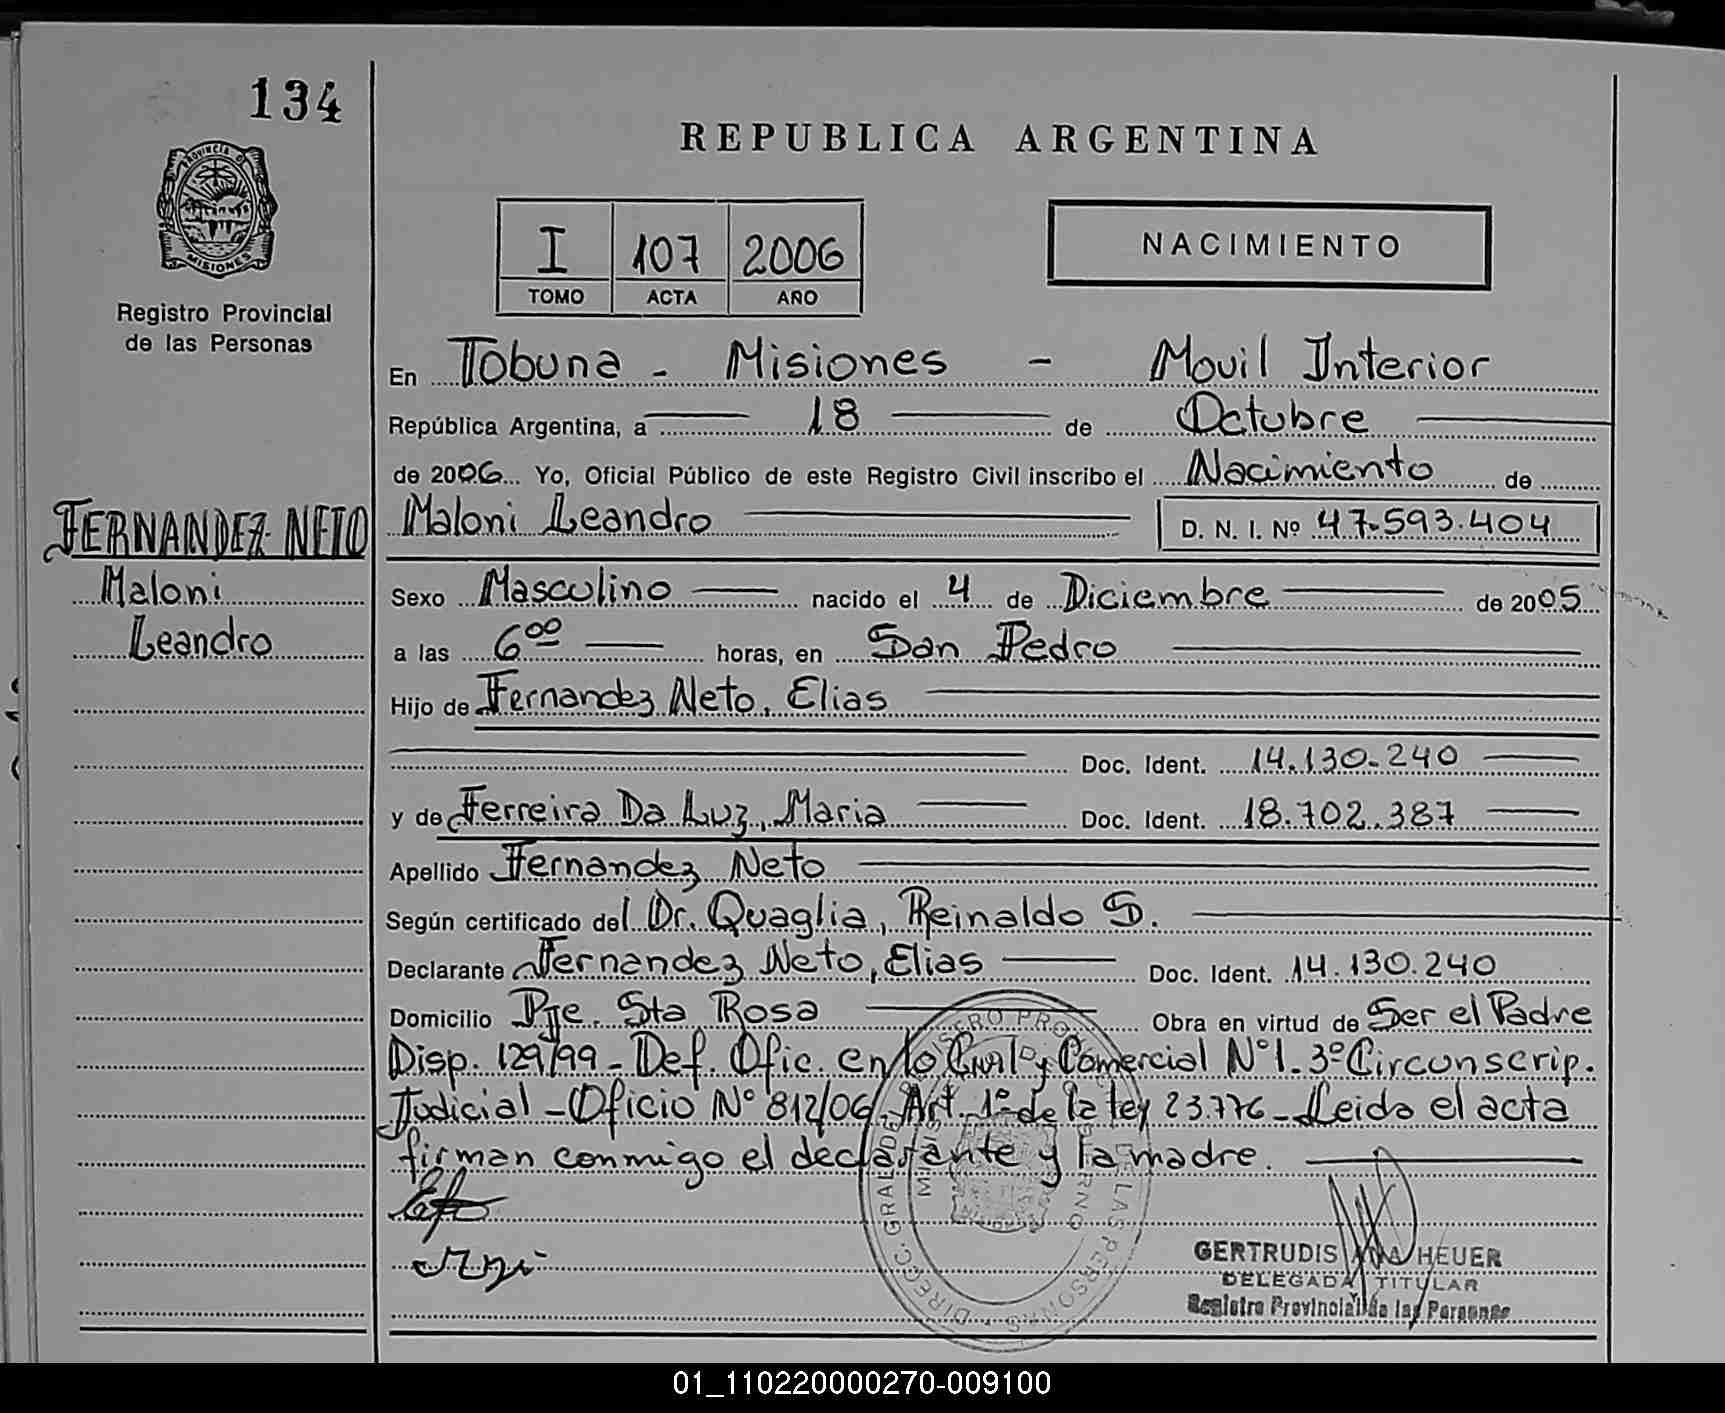 134
REPUBLICA ARGENTINA
PROVINCIA DE
MISIONES
Registro Provincial
de las Personas
I 107 2006
TOMO ACTA AÑO
NACIMIENTO
En Tobuna - Misiones - Movil Interior
República Argentina, a 18 de Octubre
de 2006 Yo, Oficial Público de este Registro Civil inscribo el Nacimiento de
FERNANDEZ NETO
Maloni Leandro D. N. I. Nº 47.593.404
Maloni
Sexo Masculino nacido el 4 de Diciembre de 2005
Leandro
a las 6⁰⁰ horas, en San Pedro
Hijo de Fernandez Neto, Elias
Doc. Ident. 14.130.240
y de Ferreira Da Luz, Maria Doc. Ident. 18.702.387
Apellido Fernandez Neto
Según certificado del Dr. Quaglia, Reinaldo S.
Declarante Fernandez Neto, Elias Doc. Ident. 14.130.240
Domicilio Pje. Sta Rosa Obra en virtud de Ser el Padre
Disp. 129/99 - Def. Ofic. en lo Civil y Comercial N° 1. 3º Circunscrip.
Judicial - Oficio N° 812/06. Art. 1º de la ley 23.776 - Leida el acta
firman conmigo el declarante y la madre.
GERTRUDIS ANA HEUER
DELEGADA TITULAR
Registro Provincial de las Personas
01_110220000270-009100